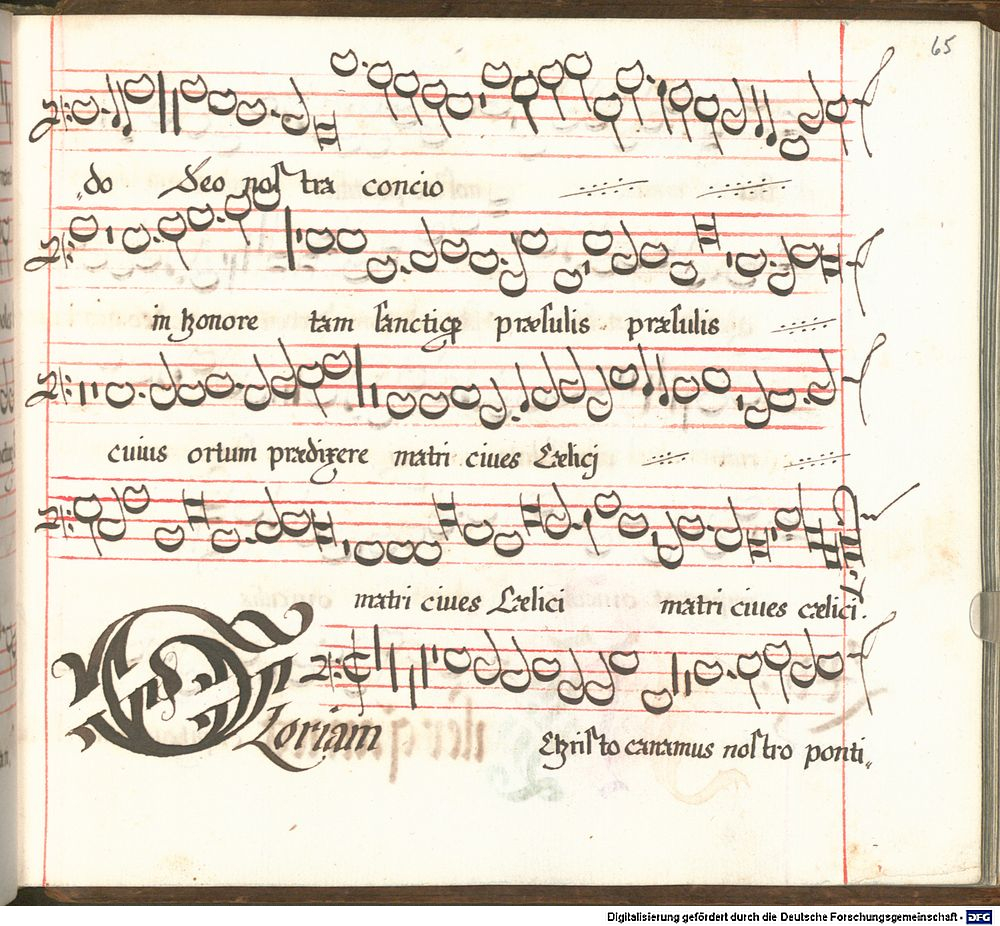 65
do Deo nostra concio
in honore tam sanctiqꝫ præsulis præsulis
cuius ortum prædixere matri ciues Cælici
matri ciues Cælici matri ciues cælici.
Gloriam
Christo canamus nostro ponti„
Digitalisierung gefördert durch die Deutsche Forschungsgemeinschaft - DFG